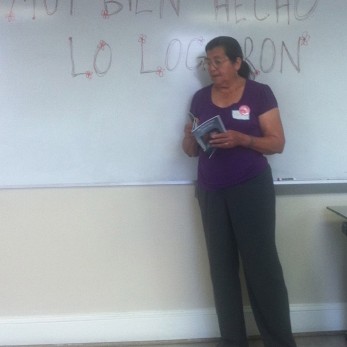 MUY BIEN HECHO
LO LOGRARON